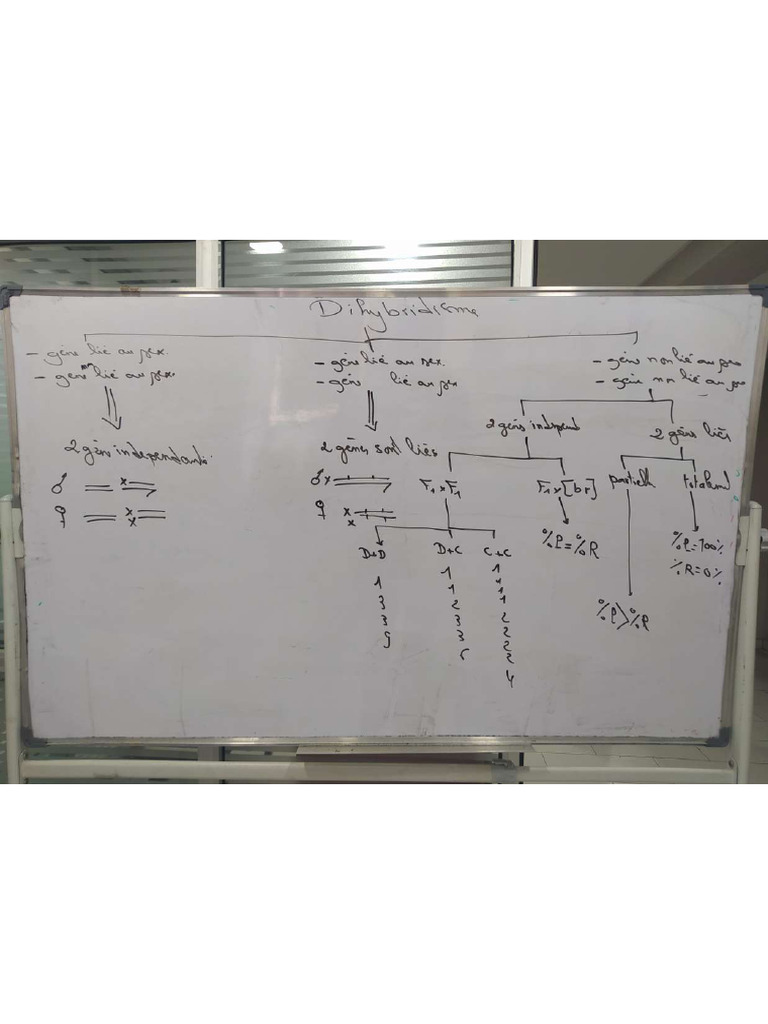 Dihybridisme
- gène lié au sex.
- gène non lié au sex.
2 gèn independants
♂
x
♀
x
x
- gène lié au sex.
- gène lié au sex
2 gènes sont liés
♂ x
♀ x
x
- gène non lié au sex
- gène non lié au sex
2 gènes independ
F1 x F1
D+D
1
3
3
9
D+C
1
1
2
3
3
6
C+C
1
1
1
1
2
2
2
2
4
F1 x [br]
%P = %R
2 gènes liés
partiell
%P > %R
totalemend
%P = 100%
%R = 0%